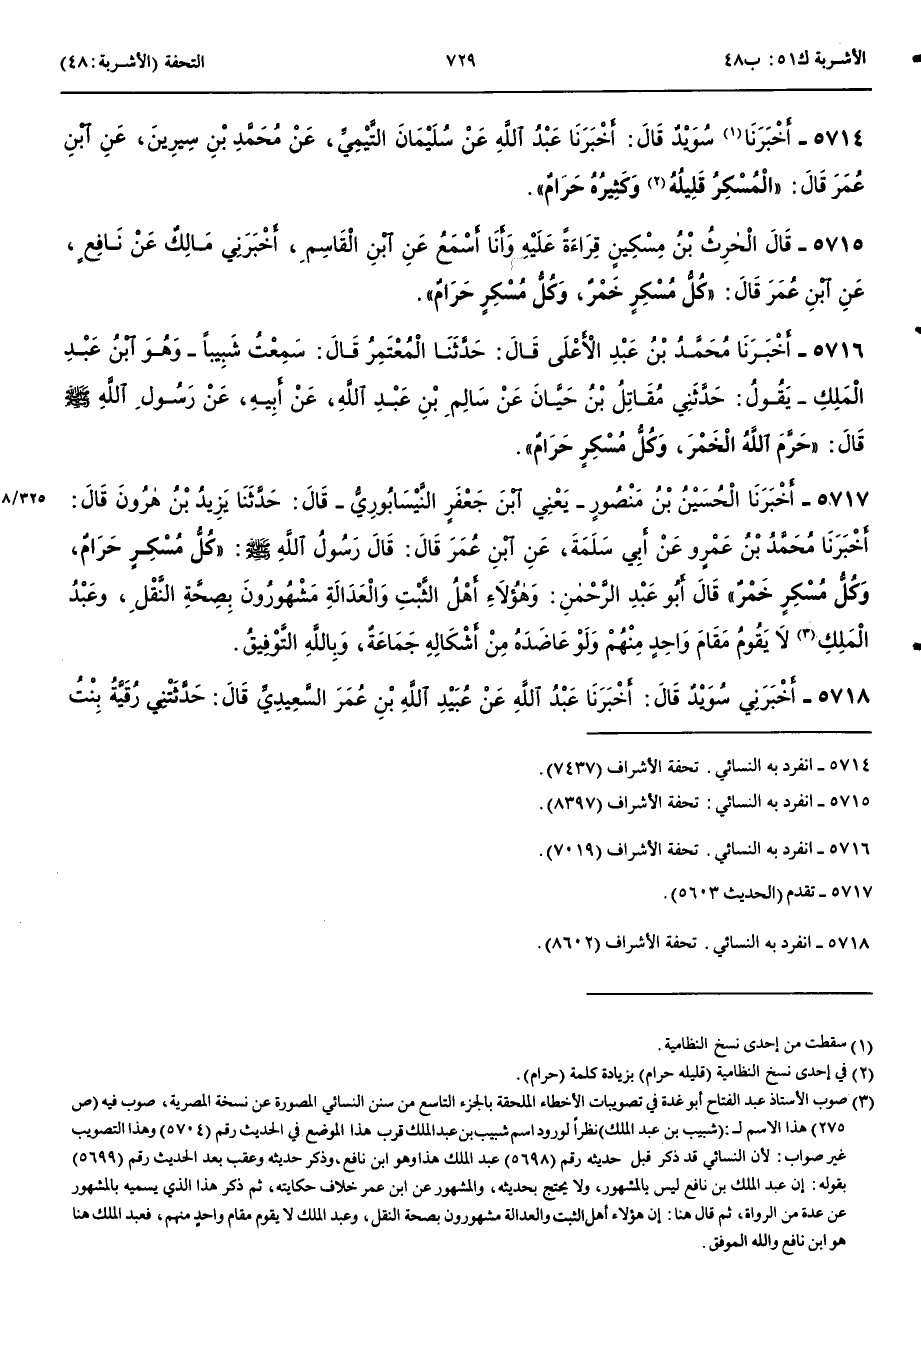 الأشربة ك٥١: ب٤٨ ٧٢٩ التحفة (الأشربة: ٤٨)
٥٧١٤ - أَخْبَرَنَا(١) سُوَيْدٌ قَالَ: أَخْبَرَنَا عَبْدُ اللَّهِ عَنْ سُلَيْمَانَ التَّيْمِيِّ، عَنْ مُحَمَّدِ بْنِ سِيرِينَ، عَنِ ٱبْنِ
عُمَرَ قَالَ: «الْمُسْكِرُ قَلِيلُهُ(٢) وَكَثِيرُهُ حَرَامٌ».
٥٧١٥ - قَالَ الْحٰرِثُ بْنُ مِسْكِينٍ قِرَاءَةً عَلَيْهِ وَأَنَا أَسْمَعُ عَنِ ٱبْنِ الْقَاسِمِ، أَخْبَرَنِي مَالِكٌ عَنْ نَافِعٍ،
عَنِ ٱبْنِ عُمَرَ قَالَ: «كُلُّ مُسْكِرٍ خَمْرٌ، وَكُلُّ مُسْكِرٍ حَرَامٌ».
٥٧١٦ - أَخْبَرَنَا مُحَمَّدُ بْنُ عَبْدِ الْأَعْلَى قَالَ: حَدَّثَنَا الْمُعْتَمِرُ قَالَ: سَمِعْتُ شَبِيباً - وَهُوَ ٱبْنُ عَبْدِ
الْمَلِكِ - يَقُولُ: حَدَّثَنِي مُقَاتِلُ بْنُ حَيَّانَ عَنْ سَالِمِ بْنِ عَبْدِ ٱللَّهِ، عَنْ أَبِيهِ، عَنْ رَسُولِ ٱللَّهِ ﷺ
قَالَ: «حَرَّمَ ٱللَّهُ الْخَمْرَ، وَكُلُّ مُسْكِرٍ حَرَامٌ».
٥٧١٧ - أَخْبَرَنَا الْحُسَيْنُ بْنُ مَنْصُورٍ - يَعْنِي ٱبْنَ جَعْفَرٍ النَّيْسَابُورِيُّ - قَالَ: حَدَّثَنَا يَزِيدُ بْنُ هٰرُونَ قَالَ: ٨/٣٢٥
أَخْبَرَنَا مُحَمَّدُ بْنُ عَمْرٍو عَنْ أَبِي سَلَمَةَ، عَنِ ٱبْنِ عُمَرَ قَالَ: قَالَ رَسُولُ ٱللَّهِ ﷺ: «كُلُّ مُسْكِرٍ حَرَامٌ،
وَكُلُّ مُسْكِرٍ خَمْرٌ» قَالَ أَبُو عَبْدِ الرَّحْمٰنِ: وَهٰؤُلَاءِ أَهْلُ الثَّبْتِ وَالْعَدَالَةِ مَشْهُورُونَ بِصِحَّةِ النَّقْلِ، وَعَبْدُ
الْمَلِكِ(٣) لَا يَقُومُ مَقَامَ وَاحِدٍ مِنْهُمْ وَلَوْ عَاضَدَهُ مِنْ أَشْكَالِهِ جَمَاعَةٌ، وَبِاللَّهِ التَّوْفِيقُ.
٥٧١٨ - أَخْبَرَنِي سُوَيْدٌ قَالَ: أَخْبَرَنَا عَبْدُ ٱللَّهِ عَنْ عُبَيْدِ ٱللَّهِ بْنِ عُمَرَ السَّعِيدِيِّ قَالَ: حَدَّثَتْنِي رُقَيَّةُ بِنْتُ
٥٧١٤ - انفرد به النسائي. تحفة الأشراف (٧٤٣٧).
٥٧١٥ - انفرد به النسائي: تحفة الأشراف (٨٣٩٧).
٥٧١٦ - انفرد به النسائي. تحفة الأشراف (٧٠١٩).
٥٧١٧ - تقدم (الحديث ٥٦٠٣).
٥٧١٨ - انفرد به النسائي. تحفة الأشراف (٨٦٠٢).
(١) سقطت من إحدى نسخ النظامية.
(٢) في إحدى نسخ النظامية (قليله حرام) بزيادة كلمة (حرام).
(٣) صوب الأستاذ عبد الفتاح أبو غدة في تصويبات الأخطاء الملحقة بالجزء التاسع من سنن النسائي المصورة عن نسخة المصرية، صوب فيه (ص
٢٧٥) هذا الاسم لـ: (شبيب بن عبد الملك) نظراً لورود اسم شبيب بن عبد الملك قرب هذا الموضع في الحديث رقم (٥٧٠٤) وهذا التصويب
غير صواب: لأن النسائي قد ذكر قبل حديثه رقم (٥٦٩٨) عبد الملك هذا وهو ابن نافع، وذكر حديثه وعقب بعد الحديث رقم (٥٦٩٩)
بقوله: إن عبد الملك بن نافع ليس بالمشهور، ولا يحتج بحديثه، والمشهور عن ابن عمر خلاف حكايته، ثم ذكر هذا الذي يسميه بالمشهور
عن عدة من الرواة، ثم قال هنا: إن هؤلاء أهل الثبت والعدالة مشهورون بصحة النقل، وعبد الملك لا يقوم مقام واحدٍ منهم، فعبد الملك هنا
هو ابن نافع والله الموفق.